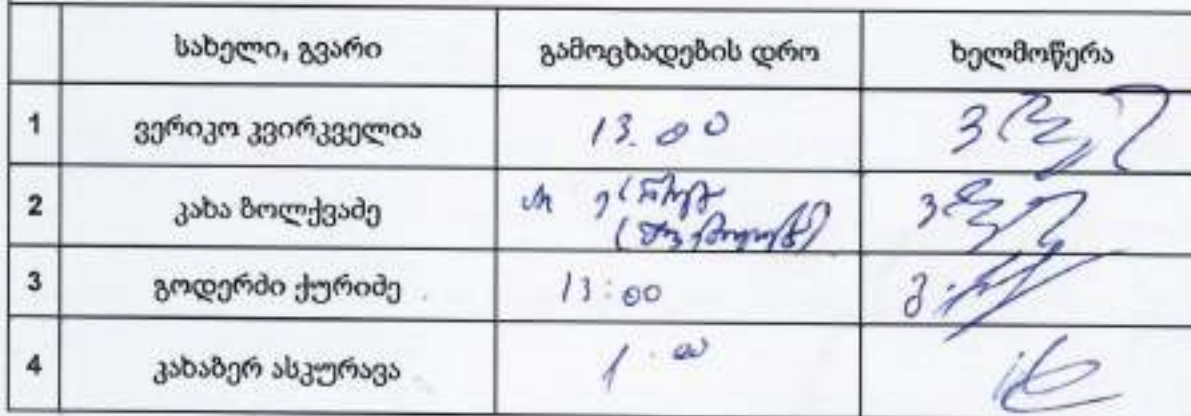 სახელი, გვარი გამოცხადების დრო ხელმოწერა
1 ვერიკო კვირკველია 13.00
2 კახა ზოლქვაძე
3 გოდერძი ქურიძე 13:00
4 კახაბერ ასკურავა 1.00